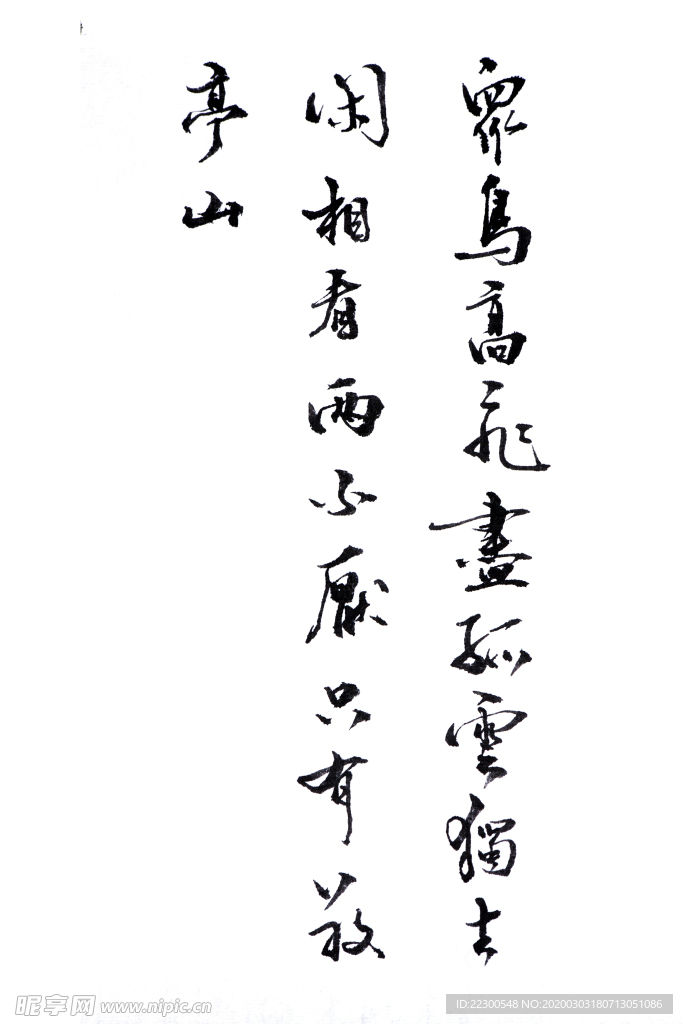 眾鳥高飛盡孤雲獨去
閑相看兩不厭只有敬
亭山
昵享网 www.nipic.cn
ID:22300548 NO:20200303180713051086